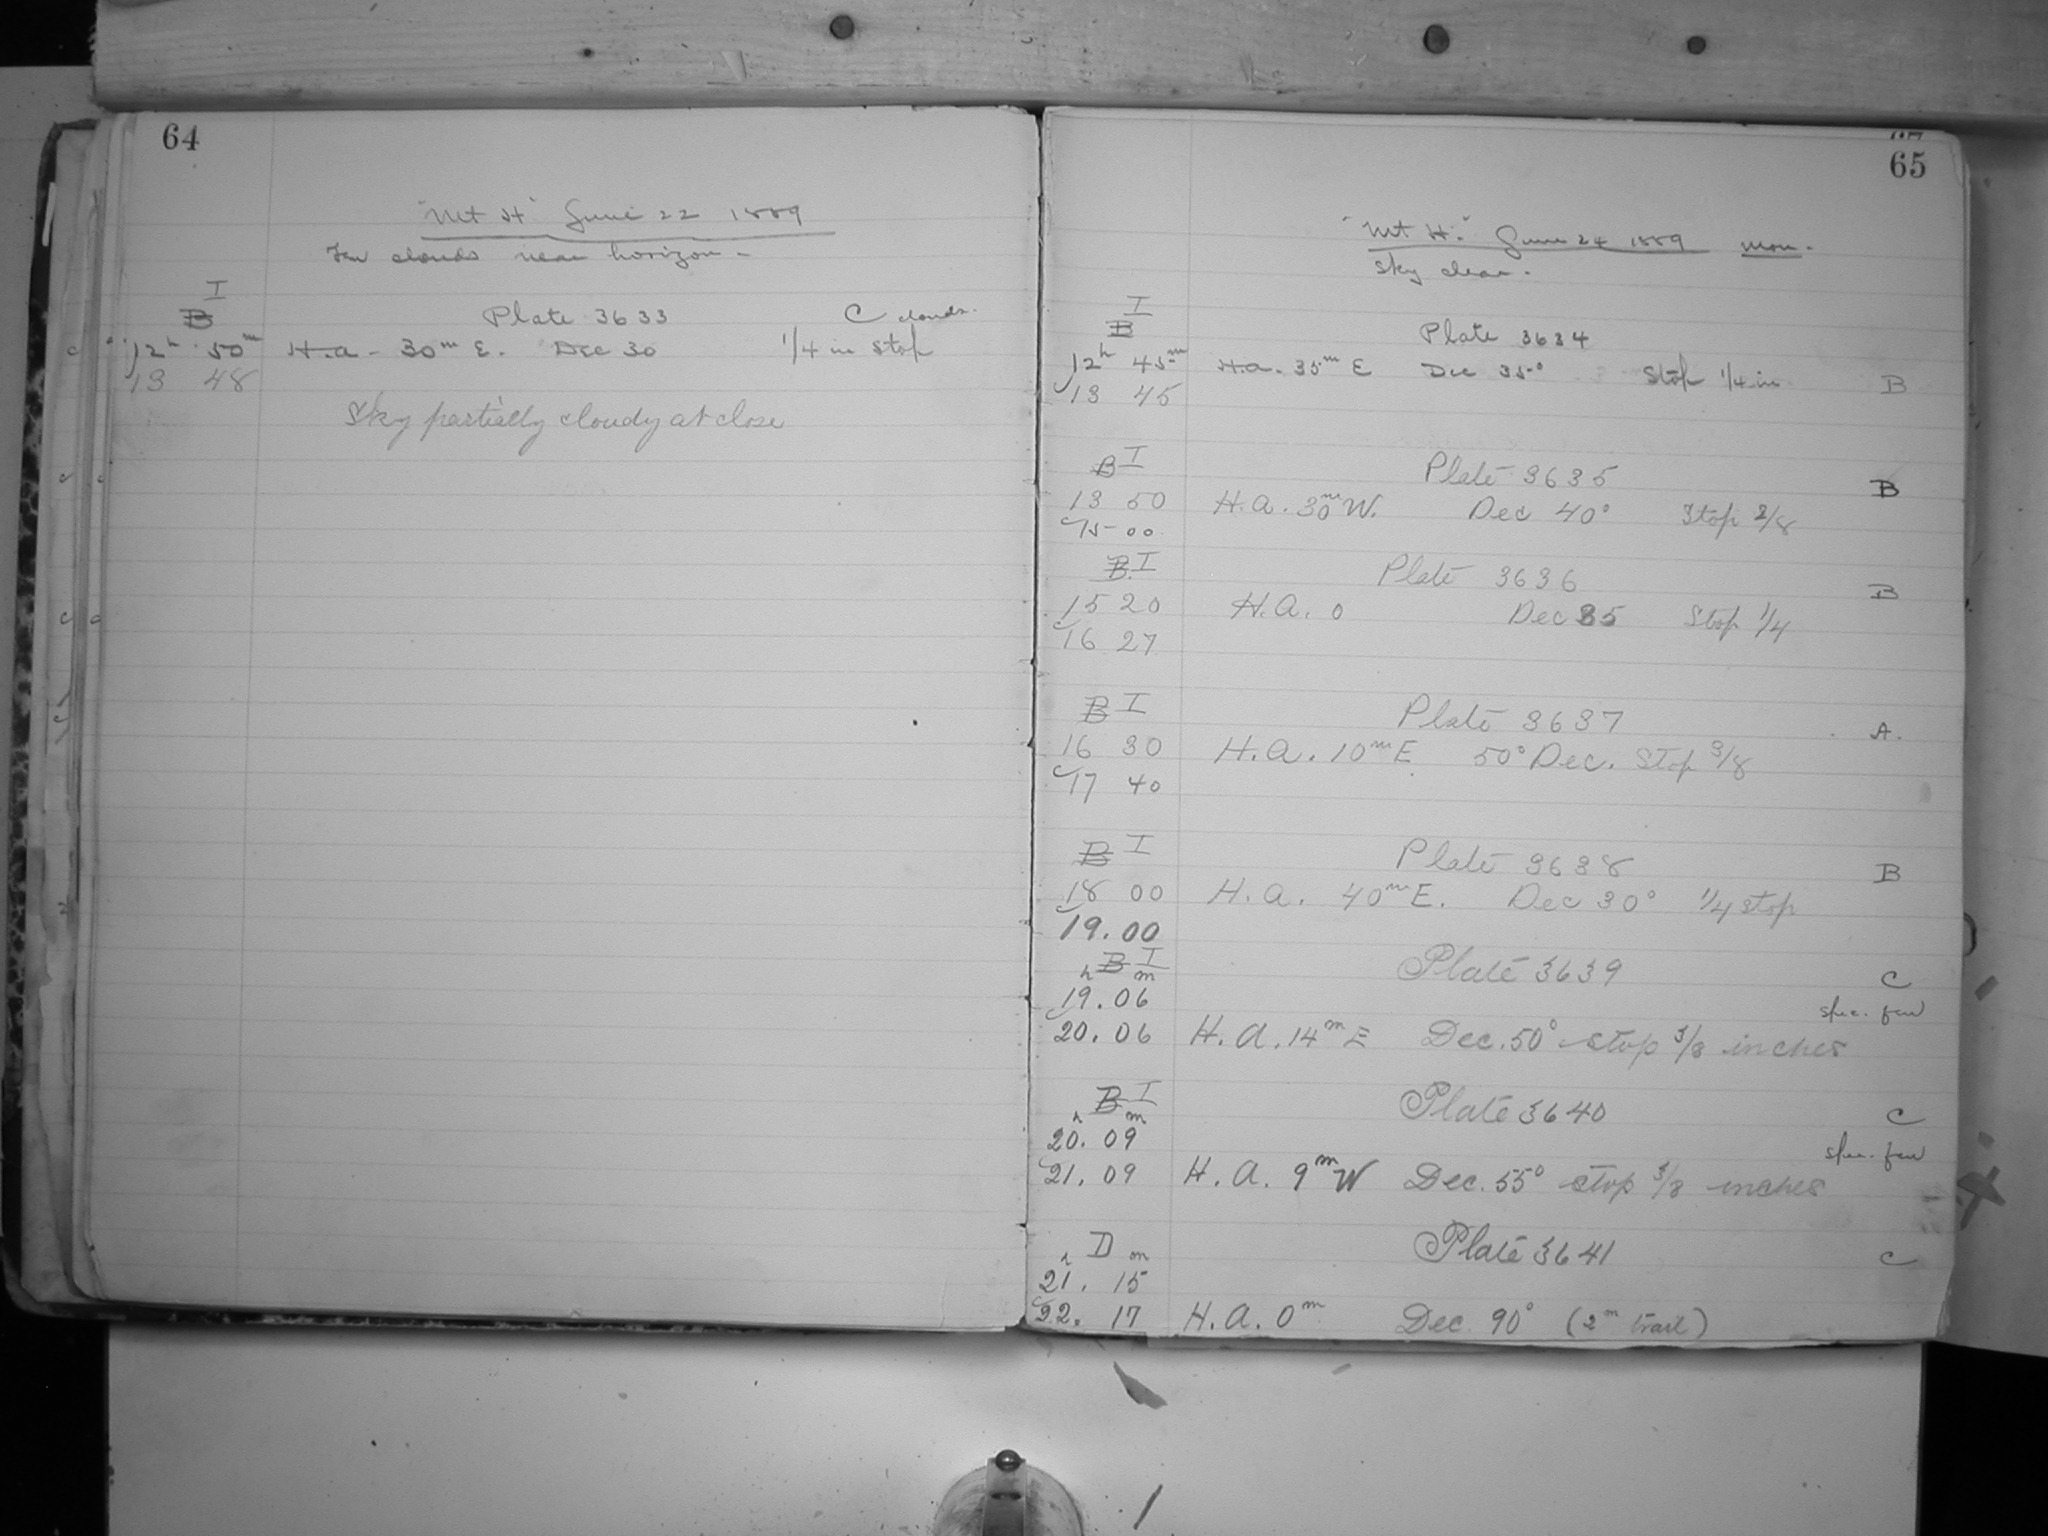 64
"Mt H" June 22 1889
Few clouds near horizon -
I
B Plate 3633 C clouds.
12h 50m H.a - 30m E. Dec 30 1/4 in stop
13 48
Sky partially cloudy at close
65
"Mt H." June 24 1889 Mon.
Sky clear.
I
B Plate 3634
12h 45m H.a. 35m E Dec 35° Stop 1/4 in B
13 45
B I Plate 3635 B
13 50 H.A. 30m W. Dec 40° Stop 2/8
15 00
B. I Plate 3636 B
15 20 H.A. 0 Dec 85 Stop 1/4
16 27
B I Plate 3637 A.
16 30 H.A. 10m E 50° Dec. Stop 3/8
17 40
B I Plate 3638 B
18 00 H.a. 40m E. Dec 30° 1/4 stop
19.00
B I Plate 3639 C
h m
19.06 spec. few
20.06 H.A. 14m E Dec. 50° stop 3/8 inches
B I Plate 3640 C
h m
20.09 spec. few
21.09 H.A. 9m W Dec. 55° stop 3/8 inches
h D m Plate 3641 C
21. 15
22. 17 H.A. 0m Dec. 90° (2m trail)